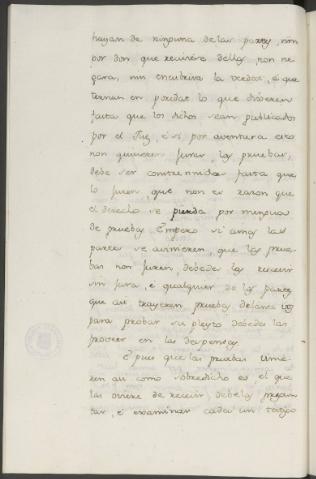 hayan de ninguna de las partes, nin
por don que reciviere dellos, non ne
gara, nin encubrira la verdat, é que
ternan en poridat lo que dixeren
fasta que los dichos sean publicados
por el Juez, é si por aventura esto
non quisieren jurar los pruebas,
debe ser constrennidos fasta que
lo juren, que non es razon que
el derecho se pierda por mengua
de pruebas. Empero si amas las
partes se avinieren, que los prue-
bas non juren, débedes los recivir
sin jura, é qualquier de las partes
que asi trayeren pruebas delante
para probar su pleyto débedes las
proveer en las despensas
E pues que las pruebas vinie-
ren asi como sobredicho es el que
las oviere de recivir, débelos pregun
tar, é examinar cada un testigo